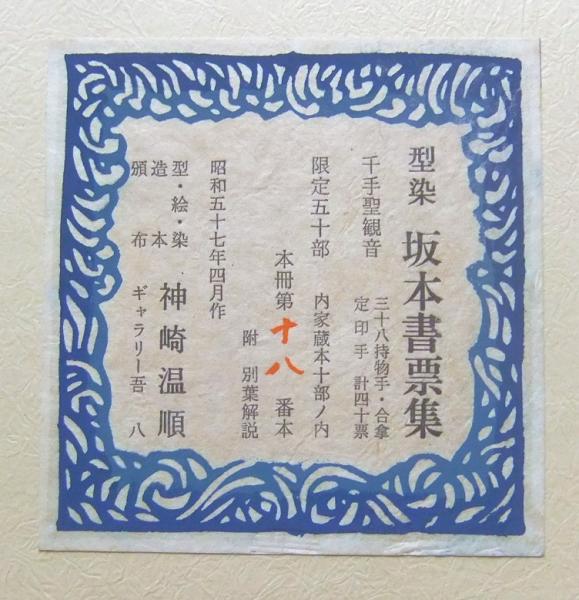 型染 坂本書票集
千手聖観音 三十八持物手・合拿
定印手 計四十票
限定五十部 内家蔵本十部ノ内
本冊第十八番本
附 別葉解説
昭和五十七年四月作
型・絵・染
造本 神崎温順
頒布 ギャラリー吾八